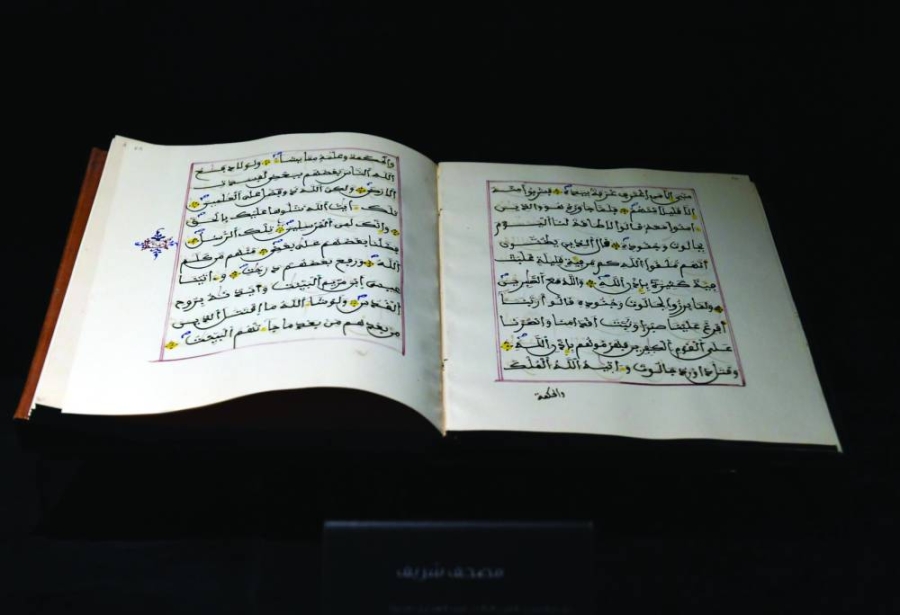 مني إلا من اغترف غرفة بيده فشربوا منه
إلا قليلا منهم فلما جاوزه هو والذين
ءامنوا معه قالوا لا طاقة لنا اليوم
بجالوت وجنوده قال الذين يظنون
أنهم ملقوا الله كم من فئة قليلة غلبت
فئة كثيرة بإذن الله والله مع الصبرين
ولما برزوا لجالوت وجنوده قالوا ربنا
أفرغ علينا صبرا وثبت أقدامنا وانصرنا
على القوم الكفرين فهزموهم بإذن الله
وقتل داوود جالوت وءاتيه الله الملك
والحكمة
والحكمة وعلمه مما يشاء ولولا دفع
الله الناس بعضهم ببعض لفسدت
الأرض ولكن الله ذو فضل على العلمين
تلك ءايت الله نتلوها عليك بالحق
وإنك لمن المرسلين تلك الرسل
فضلنا بعضهم على بعض منهم من كلم
الله ورفع بعضهم درجت وءاتينا
عيسى ابن مريم البينت وأيدنه بروح
القدس ولو شاء الله ما اقتتل الذين
من بعدهم من بعد ما جاءتهم البينت
مصحف شريف